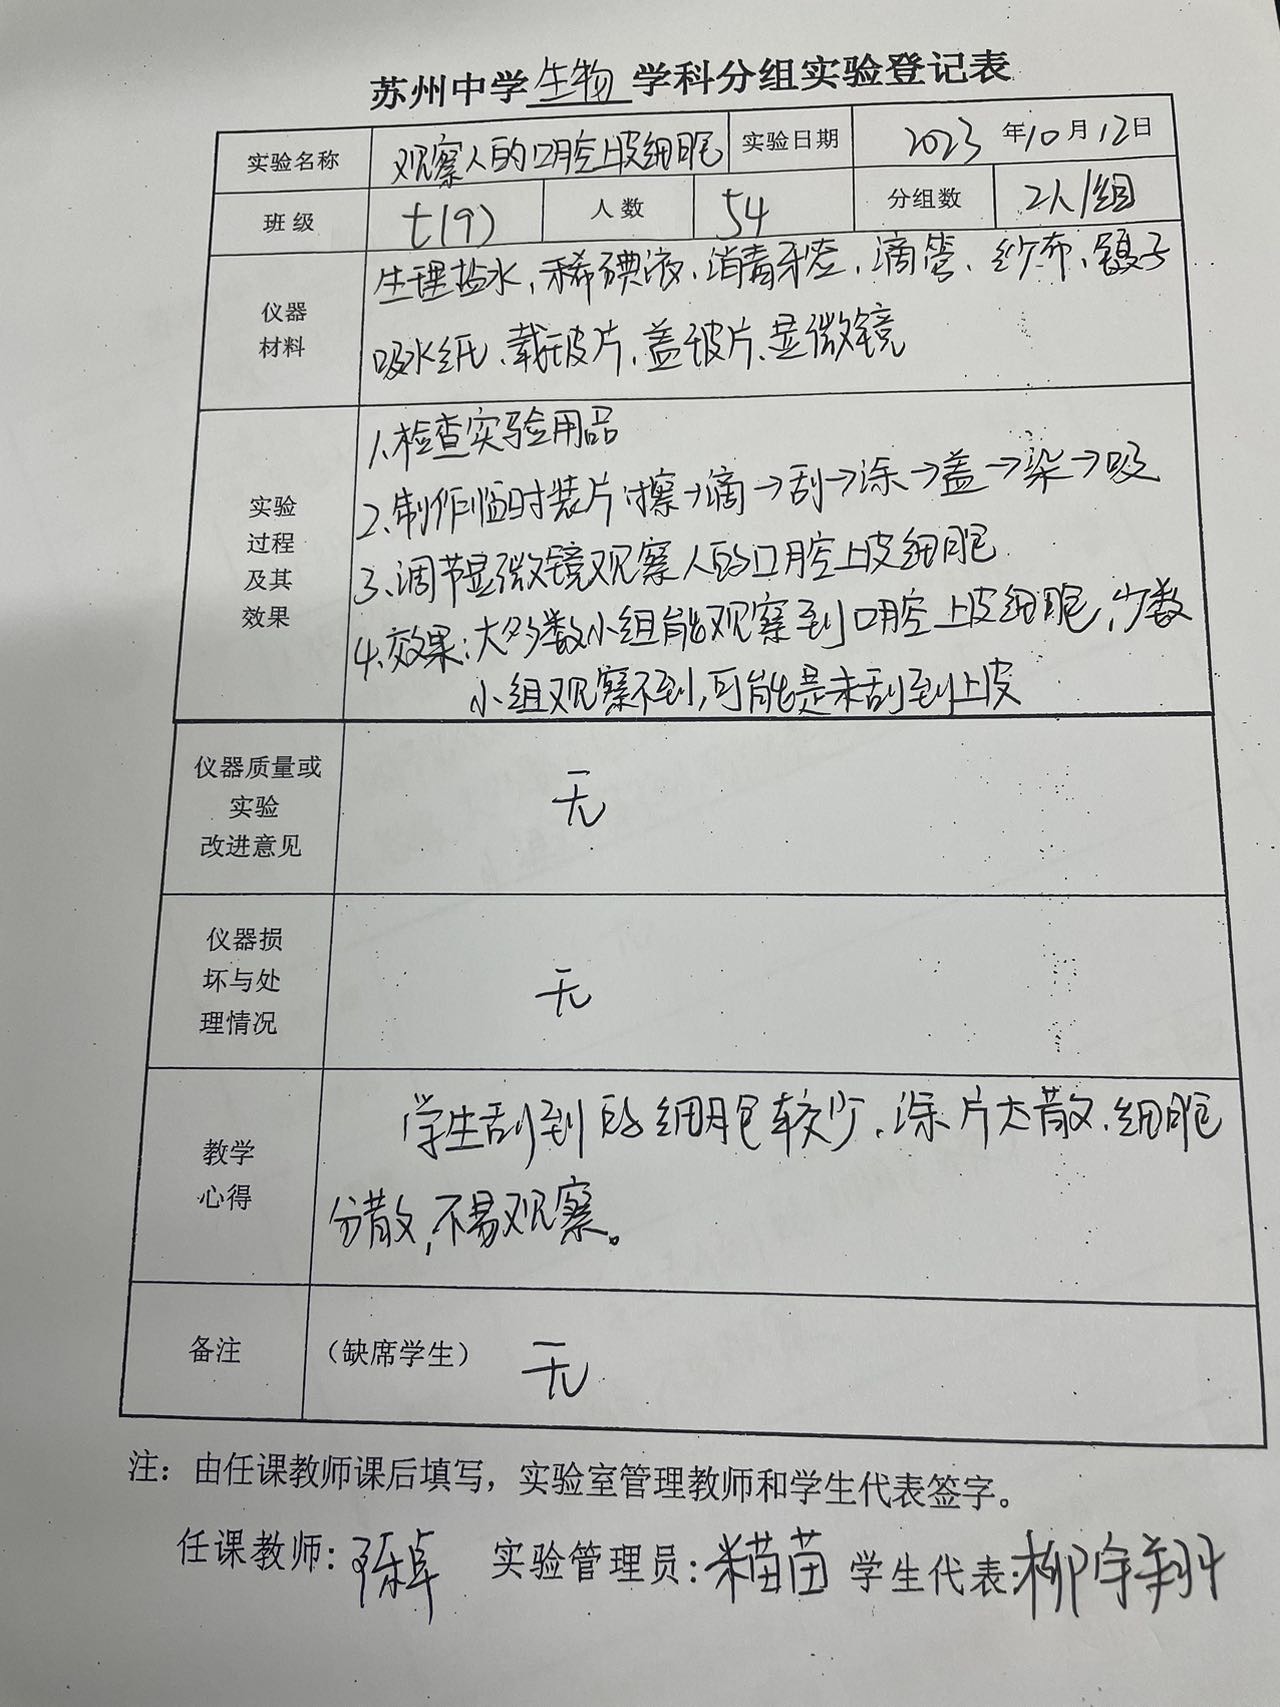 苏州中学生物学科分组实验登记表
实验名称 观察人的口腔上皮细胞 实验日期 2023年10月12日
班级 七(9) 人数 54 分组数 2人/组
仪器材料
生理盐水、稀碘液、消毒牙签、滴管、纱布、镊子
吸水纸、载玻片、盖玻片、显微镜
实验过程及其效果
1、检查实验用品
2、制作临时装片:擦→滴→刮→涂→盖→染→吸
3、调节显微镜观察人的口腔上皮细胞
4、效果:大多数小组能观察到口腔上皮细胞,少数
小组观察不到,可能是未刮到上皮
仪器质量或实验改进意见
无
仪器损坏与处理情况
无
教学心得
学生刮到的细胞较少、涂片太散、细胞
分散,不易观察。
备注 (缺席学生) 无
注:由任课教师课后填写,实验室管理教师和学生代表签字。
任课教师: 实验管理员: 学生代表:柳宇翔